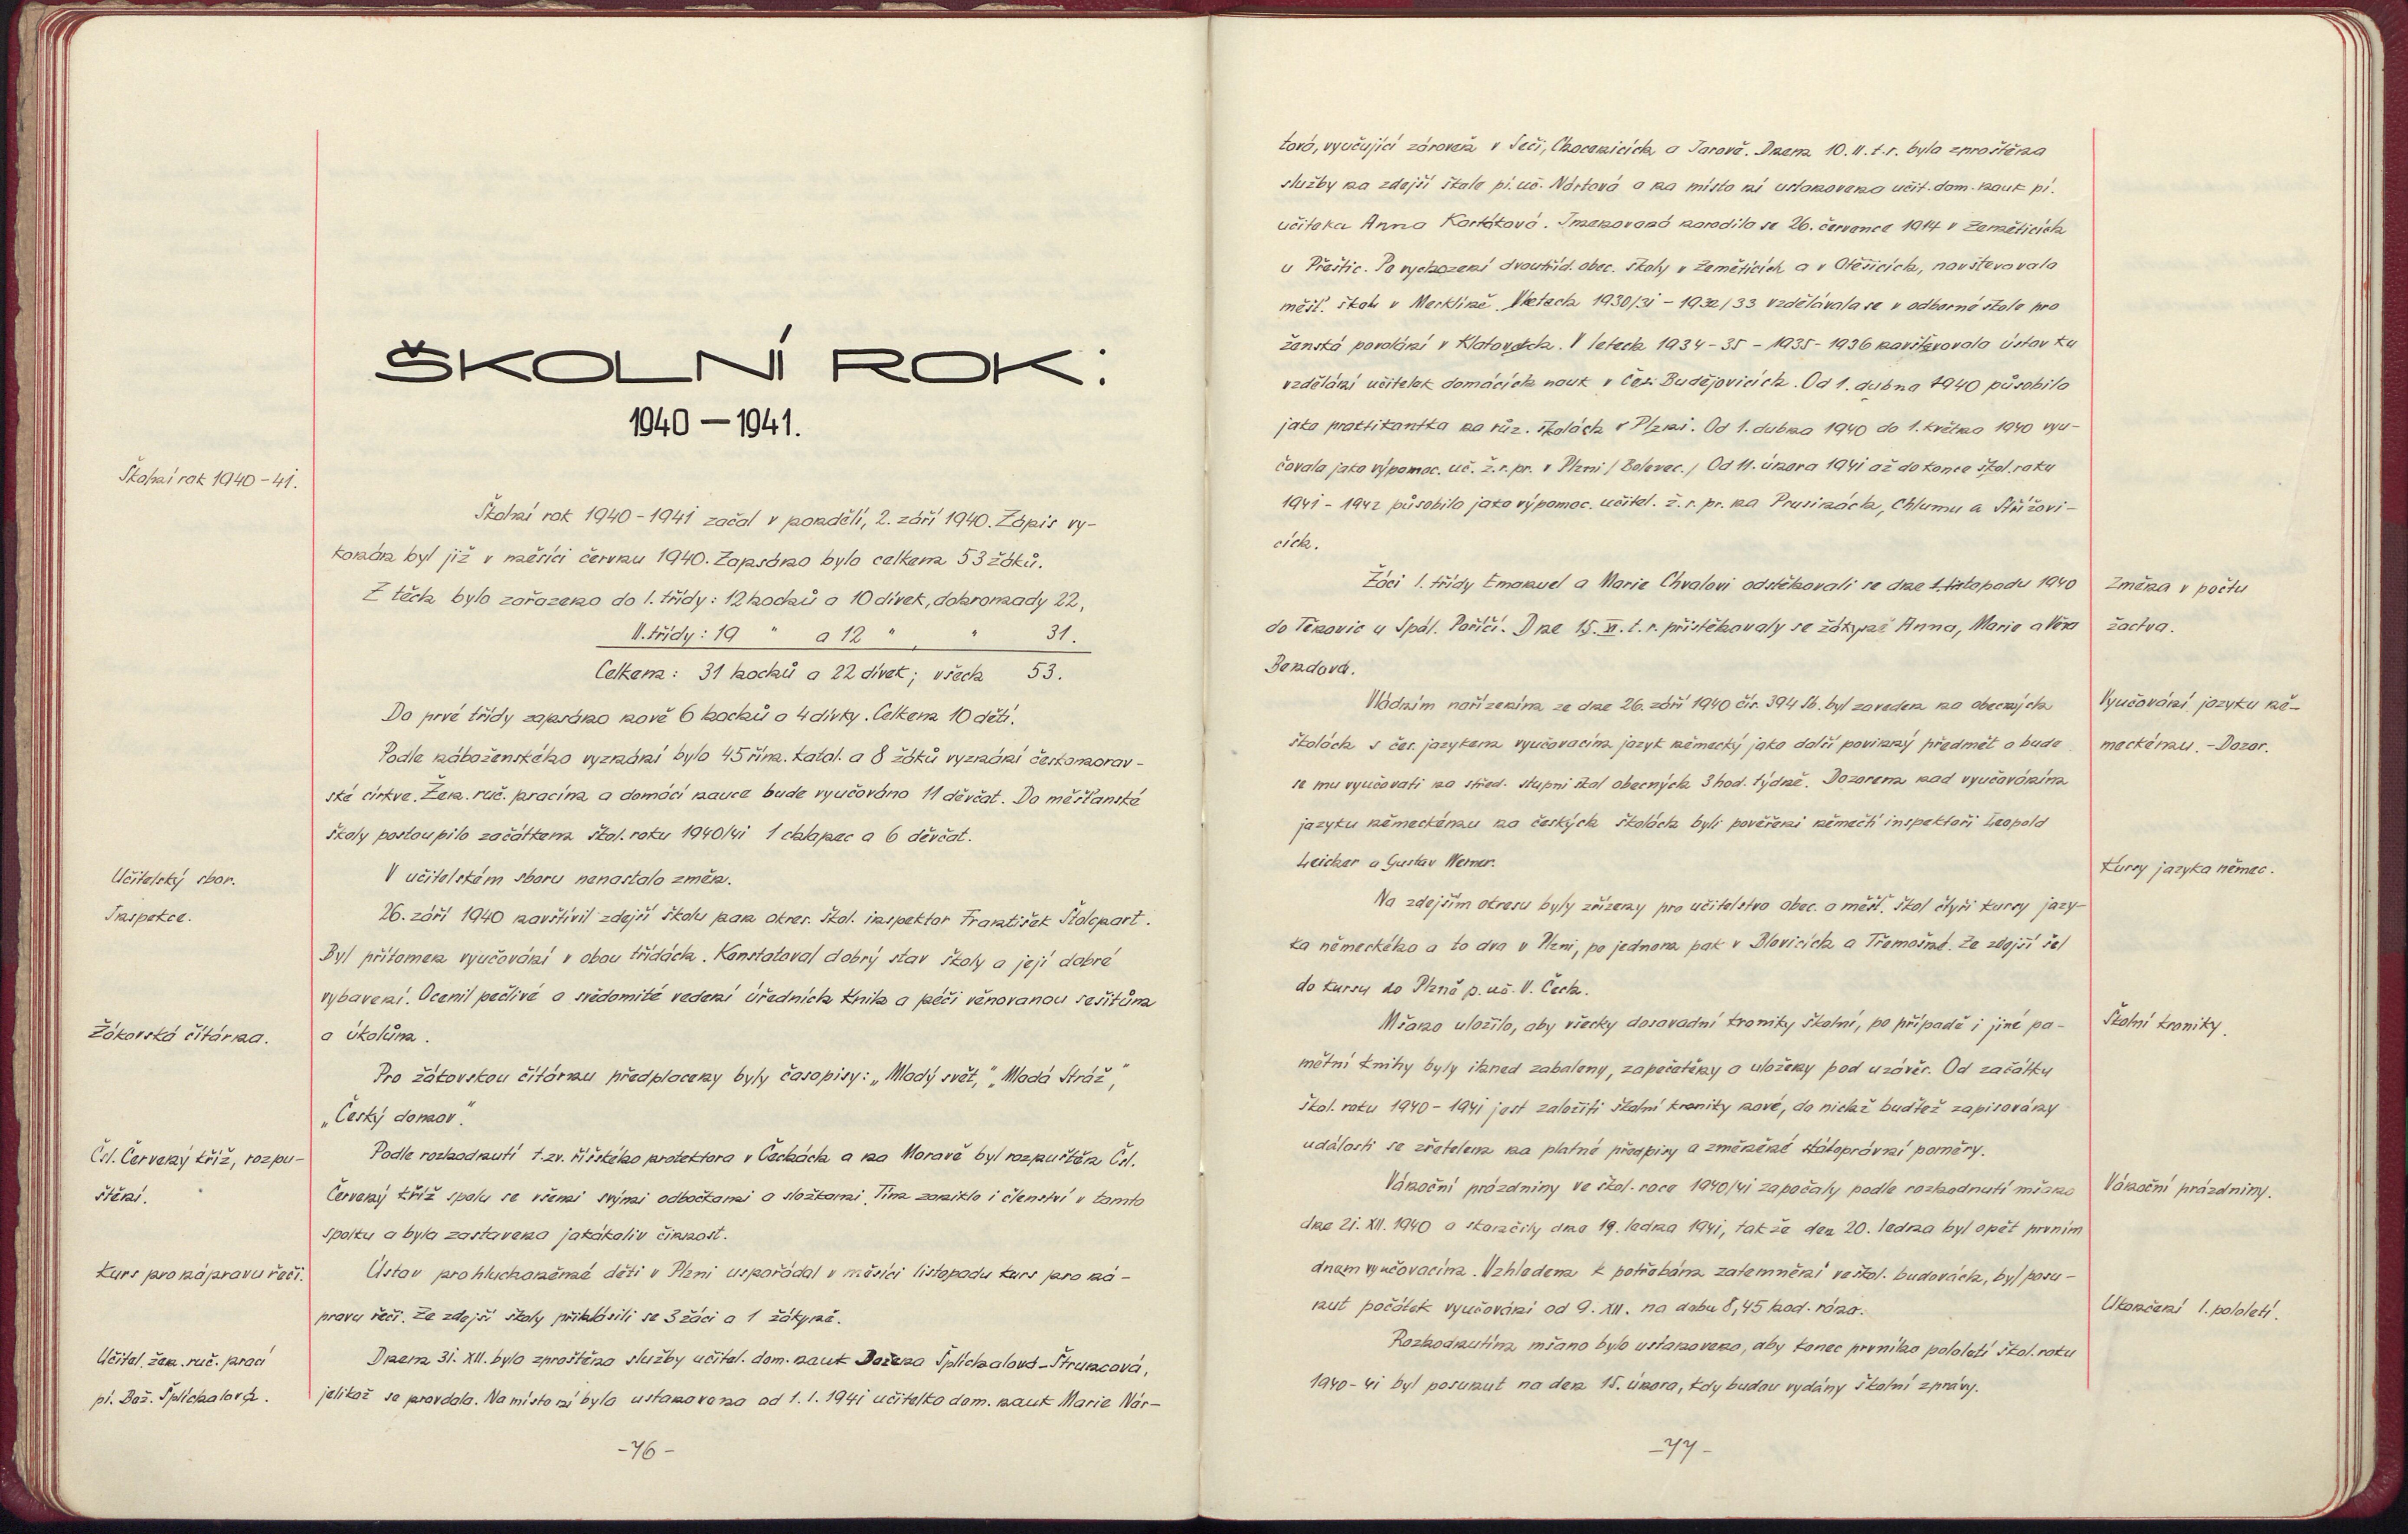 ŠKOLNÍ ROK:
1940 — 1941.
Školní rok 1940 - 41.
Školní rok 1940 - 1941 začal v pondělí, 2. září 1940. Zápis vy-
konán byl již v měsíci červnu 1940. Zapsáno bylo celkem 53 žáků.
Z těch bylo zařazeno do I. třídy: 12 hochů a 10 dívek, dohromady 22,
II. třídy: 19 " a 12 " , " 31.
Celkem: 31 hochů a 22 dívek; všech 53.
Do prvé třídy zapsáno nově 6 hochů a 4 dívky. Celkem 10 dětí.
Podle náboženského vyznání bylo 45 řím. katol. a 8 žáků vyznání českomorav-
ské církve. Žen. ruč. pracím a domácí nauce bude vyučováno 11 děvčat. Do měšťanské
školy postoupilo začátkem škol. roku 1940/41 1 chlapec a 6 děvčat.
Učitelský sbor.
V učitelském sboru nenastalo změn.
Inspekce.
26. září 1940 navštívil zdejší školu pan okres. škol. inspektor František Štolcpart.
Byl přítomen vyučování v obou třídách. Konstatoval dobrý stav školy a její dobré
vybavení. Ocenil pečlivé a svědomité vedení úředních knih a péči věnovanou sešitům
a úkolům.
Žákovská čítárna.
Pro žákovskou čítárnu předplaceny byly časopisy: „Mladý svět," „Mladá Stráž",
„Český domov".
Čsl. Červený kříž, rozpu-
štění.
Podle rozhodnutí t. zv. říšského protektora v Čechách a na Moravě byl rozpuštěn Čsl.
Červený kříž spolu se všemi svými odbočkami a složkami. Tím zaniklo i členství v tomto
spolku a byla zastavena jakákoliv činnost.
Kurs pro nápravu řeči.
Ústav pro hluchoněmé děti v Plzni uspořádal v měsíci listopadu kurs pro ná-
pravu řeči. Ze zdejší školy přihlásili se 3 žáci a 1 žákyně.
Učitel. žen. ruč. prací
pí. Bož. Šplíchalová.
Dnem 31. XII. byla zproštěna služby učitel. dom. nauk Božena Šplíchalová - Štruncová,
jelikož se provdala. Na místo ní byla ustanovena od 1. I. 1941 učitelka dom. nauk Marie Nár-
- 76 -
tová, vyučující zároveň v Seči, Chocenicích a Jarově. Dnem 10. II. t. r. byla zproštěna
služby na zdejší škole pí. uč. Nártová a na místo ní ustanovena učit. dom. nauk pí.
učitelka Anna Kortáková. Jmenovaná narodila se 26. července 1914 v Zeměticích
u Přeštic. Po vychození dvoutříd. obec. školy v Zemětících a v Otěšicích, navštěvovala
měšť. školu v Merklíně. V letech 1930/31 - 1932/33 vzdělávala se v odborné škole pro
ženská povolání v Klatovech. V letech 1934 - 35 - 1935 - 1936 navštěvovala ústav ku
vzdělání učitelek domácích nauk v Čes. Budějovicích. Od 1. dubna 1940 působila
jako praktikantka na růz. školách v Plzni. Od 1. dubna 1940 do 1. května 1940 vyu-
čovala jako výpomoc. uč. ž. r. pr. v Plzni / Bolevec. / Od 11. února 1941 až do konce škol. roku
1941 - 1942 působila jako výpomoc. učitel. ž. r. pr. na Prusinách, Chlumu a Střížovi-
cích.
Žáci I. třídy Emanuel a Marie Chvalovi odstěhovali se dne 1. listopadu 1940
do Těnovic u Spál. Poříčí. Dne 15. XI. t. r. přistěhovaly se žákyně Anna, Marie a Věra
Bendova.
Změna v počtu
žactva.
Vládním nařízením ze dne 26. září 1940 čís. 394 Sb. byl zaveden na obecných
školách s čes. jazykem vyučovacím jazyk německý jako další povinný předmět a bude
se mu vyučovati na střed. stupni škol obecných 3 hod. týdně. Dozorem nad vyučováním
jazyku německému na českých školách byli pověřeni němečtí inspektoři Leopold
Leicher a Gustav Werner.
Vyučování jazyku ně-
meckému. - Dozor.
Kursy jazyka němec.
Na zdejším okresu byly zřízeny pro učitelstvo obec. a měšť. škol čtyři kursy jazy-
ka německého a to dva v Plzni, po jednom pak v Blovicích a Třemošné. Ze zdejší šel
do kursu do Plzně p. uč. V. Čech.
Mšano uložilo, aby všecky dosavadní kroniky školní, po případě i jiné pa-
mětní knihy byly ihned zabaleny, zapečetěny a uloženy pod uzávěr. Od začátku
škol. roku 1940 - 1941 jest založiti školní kroniky nové, do nichž buďtež zapisovány
události se zřetelem na platné předpisy a změněné státoprávní poměry.
Školní kroniky.
Vánoční prázdniny ve škol. roce 1940/41 započaly podle rozhodnutí mšano
dne 21. XII. 1940 a skončily dne 19. ledna 1941, takže den 20. ledna byl opět prvním
dnem vyučovacím. Vzhledem k potřebám zatemnění ve škol. budovách, byl posu-
nut počátek vyučování od 9. XII. na dobu 8,45 hod. ráno.
Vánoční prázdniny.
Ukončení I. pololetí.
Rozhodnutím mšano bylo ustanoveno, aby konec prvního pololetí škol. roku
1940 - 41 byl posunut na den 15. února, kdy budou vydány školní zprávy.
- 77 -